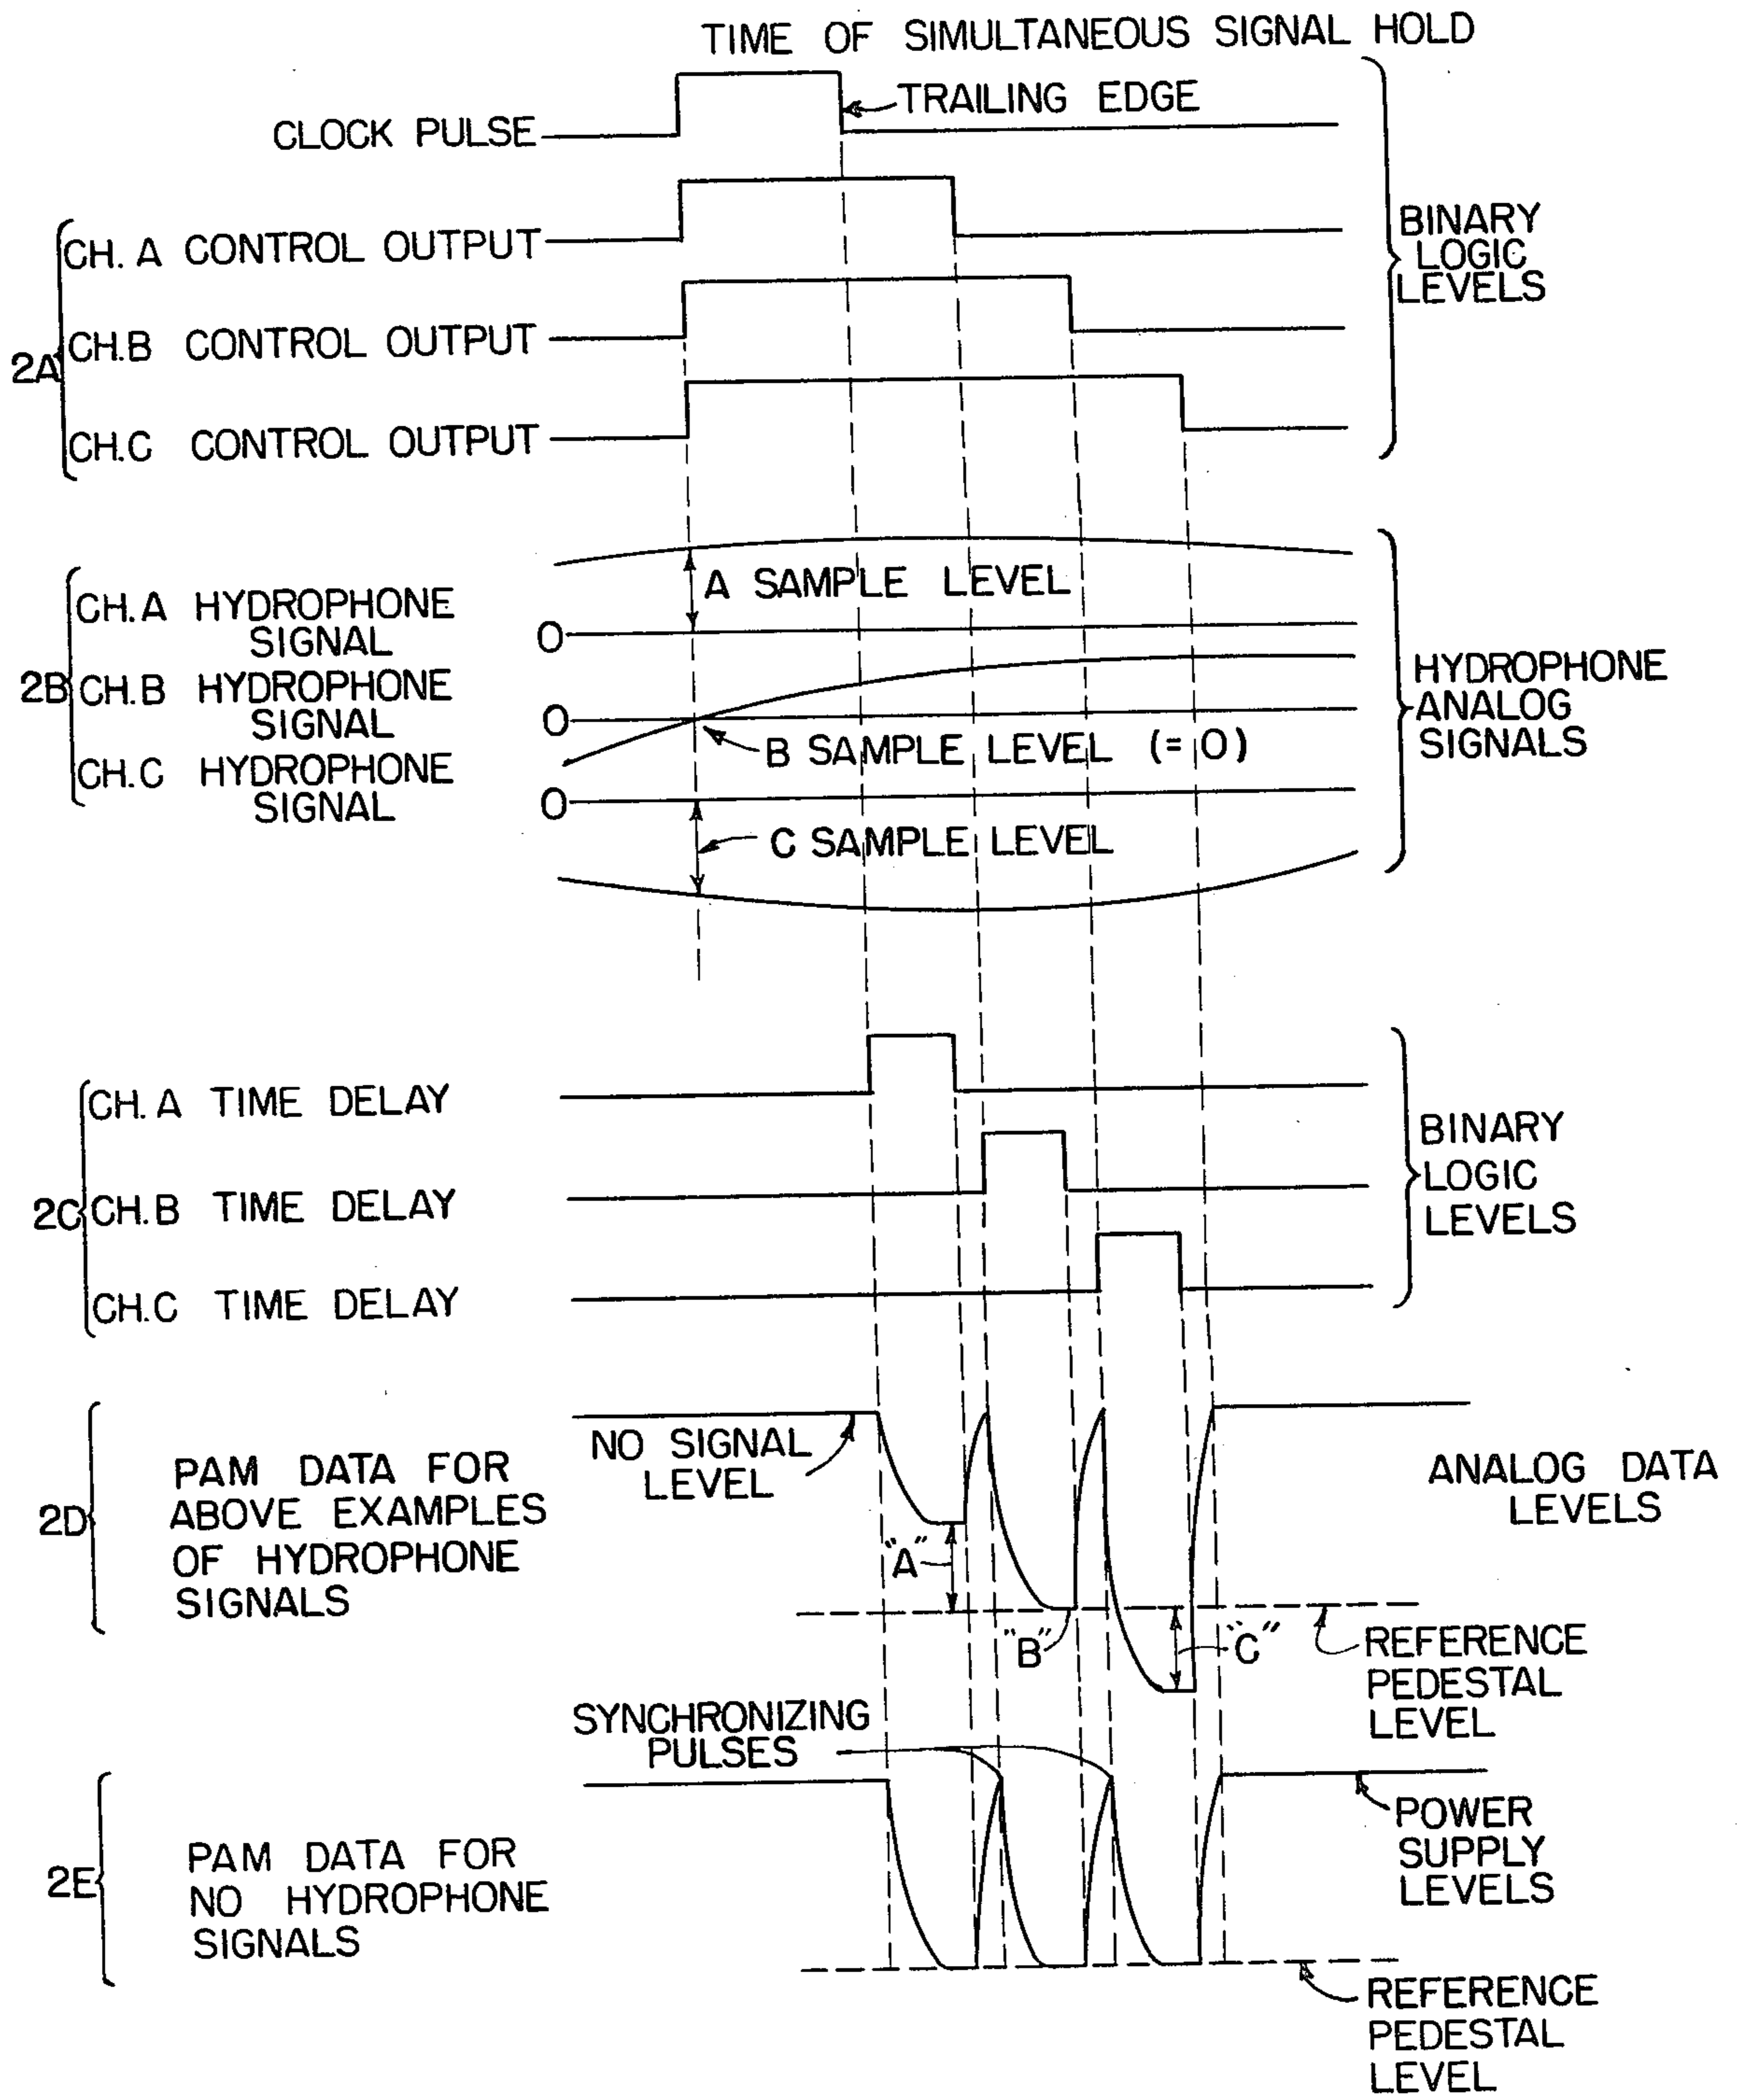 TIME OF SIMULTANEOUS SIGNAL HOLD
TRAILING EDGE
CLOCK PULSE
2A
CH. A CONTROL OUTPUT
CH.B CONTROL OUTPUT
CH.C CONTROL OUTPUT
BINARY
LOGIC
LEVELS
2B
CH.A HYDROPHONE
SIGNAL
O
A SAMPLE LEVEL
CH.B HYDROPHONE
SIGNAL
O
B SAMPLE LEVEL (=O)
CH.C HYDROPHONE
SIGNAL
O
C SAMPLE LEVEL
HYDROPHONE
ANALOG
SIGNALS
2C
CH. A TIME DELAY
CH.B TIME DELAY
CH.C TIME DELAY
BINARY
LOGIC
LEVELS
2D
PAM DATA FOR
ABOVE EXAMPLES
OF HYDROPHONE
SIGNALS
NO SIGNAL
LEVEL
ANALOG DATA
LEVELS
"A"
"B"
"C"
REFERENCE
PEDESTAL
LEVEL
SYNCHRONIZING
PULSES
2E
PAM DATA FOR
NO HYDROPHONE
SIGNALS
POWER
SUPPLY
LEVELS
REFERENCE
PEDESTAL
LEVEL